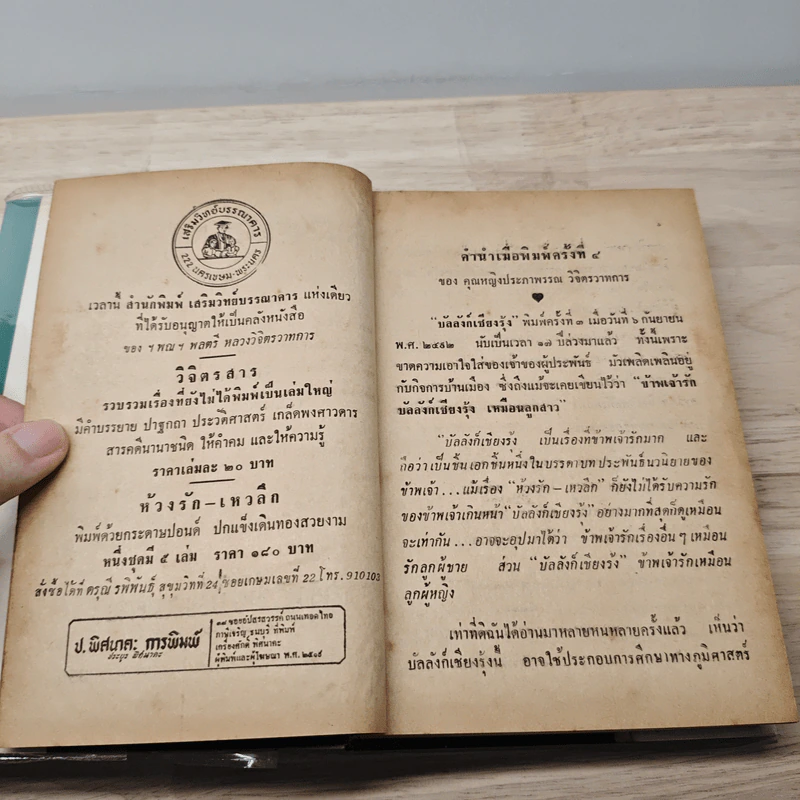 เสริมวิทย์บรรณาคาร
222 นครเขษม-พระนคร
เวลานี้ สำนักพิมพ์ เสริมวิทย์บรรณาคาร แห่งเดียว
ที่ได้รับอนุญาตให้เป็นคลังหนังสือ
ของ ฯพณฯ พลตรี หลวงวิจิตรวาทการ
วิจิตรสาร
รวบรวมเรื่องที่ยังไม่ได้พิมพ์เป็นเล่มใหญ่
มีคำบรรยาย ปาฐกถา ประวัติศาสตร์ เกล็ดพงศาวดาร
สารคดีนานาชนิด ให้คำคม และให้ความรู้
ราคาเล่มละ ๒๐ บาท
ห้วงรัก-เหวลึก
พิมพ์ด้วยกระดาษปอนด์ ปกแข็งเดินทองสวยงาม
หนึ่งชุดมี ๕ เล่ม ราคา ๑๘๐ บาท
สั่งซื้อได้ที่ ดรุณี รพิพันธุ์ สุขุมวิทที่ 24 ซอยเกษมเลขที่ 22 โทร. 910103
ป. พิศนาคะ การพิมพ์
ประยูร พิศนาคะ
๓๗ ซอยอัปสรสวรรค์ ถนนเทอดไทย
ภาษีเจริญ ธนบุรี ที่พิมพ์
เครื่องศักดิ์ พิศนาคะ
ผู้พิมพ์และผู้โฆษณา พ.ศ. ๒๕๑๙
คำนำเมื่อพิมพ์ครั้งที่ ๔
ของ คุณหญิงประภาพรรณ วิจิตรวาทการ
"บัลลังก์เชียงรุ้ง" พิมพ์ครั้งที่ ๓ เมื่อวันที่ ๖ กันยายน
พ.ศ. ๒๕๐๒ นับเป็นเวลา ๑๗ ปีล่วงมาแล้ว ทั้งนี้เพราะ
ขาดความเอาใจใส่ของเจ้าของผู้ประพันธ์ มัวเพลิดเพลินอยู่
กับกิจการบ้านเมือง ซึ่งถึงแม้จะเคยเขียนไว้ว่า "ข้าพเจ้ารัก
บัลลังก์เชียงรุ้ง เหมือนลูกสาว"
"บัลลังก์เชียงรุ้ง เป็นเรื่องที่ข้าพเจ้ารักมาก และ
ถือว่าเป็นชิ้นเอกชิ้นหนึ่งในบรรดาบทประพันธ์นวนิยายของ
ข้าพเจ้า...แม้เรื่อง "ห้วงรัก-เหวลึก" ก็ยังไม่ได้รับความรัก
ของข้าพเจ้าเกินหน้า "บัลลังก์เชียงรุ้ง" อย่างมากที่สุดก็ดูเหมือน
จะเท่ากัน...อาจจะอุปมาได้ว่า ข้าพเจ้ารักเรื่องอื่นๆ เหมือน
รักลูกผู้ชาย ส่วน "บัลลังก์เชียงรุ้ง" ข้าพเจ้ารักเหมือน
ลูกผู้หญิง
เท่าที่ดิฉันได้อ่านมาหลายหนหลายครั้งแล้ว เห็นว่า
บัลลังก์เชียงรุ้งนี้ อาจใช้ประกอบการศึกษาทางภูมิศาสตร์